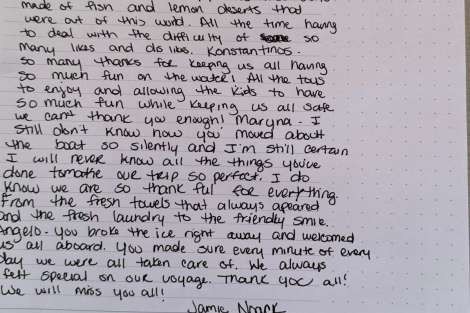 made of fish and lemon deserts that
were out of this world. All the time having
to deal with the difficulty of so
many likes and dis likes. Konstantinos.
So many thanks for keeping us all having
so much fun on the water! All the toys
to enjoy and allowing the kids to have
so much fun while keeping us all safe
we cant thank you enough! Maryna. I
still don't know how you moved about
the boat so silently and I'm still certain
I will never know all the things you've
done tomake our trip so perfect. I do
know we are so thank ful for everything.
From the fresh towels that always apeared
and the fresh laundry to the friendly smile.
Angelo. You broke the ice right away and welcomed
us all aboard. You made sure every minute of every
day we were all taken care of. We always
felt special on our voyage. Thank you all!
We will miss you all!
Jamie